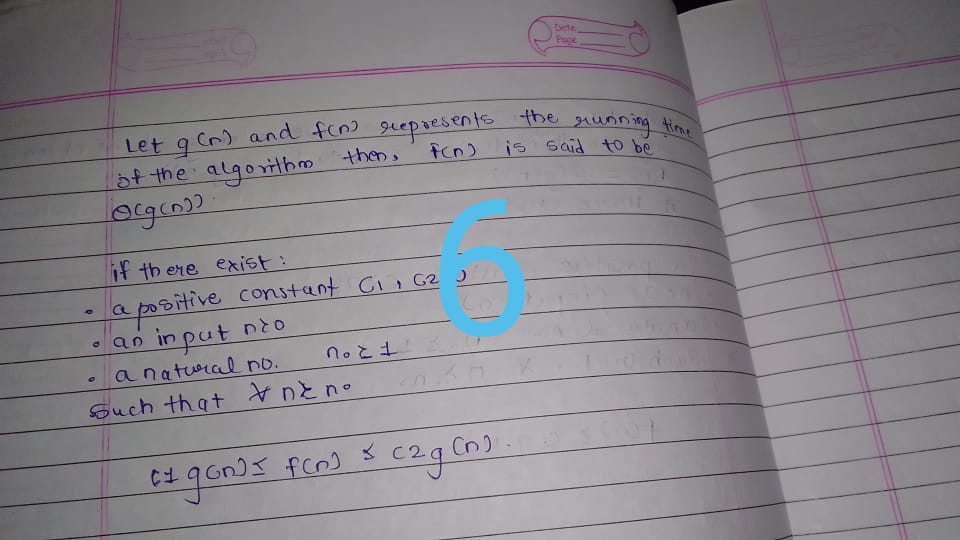 Date
Page
Let g(n) and f(n) represents the running time
of the algorithm then, f(n) is said to be
Θ(g(n)).
if there exist:
• a positive constant C1, C2
• an input n≥0
• a natural no. n₀ ≥ 1
Such that ∀ n ≥ n₀
C1 g(n) ≤ f(n) ≤ C2 g(n).
6